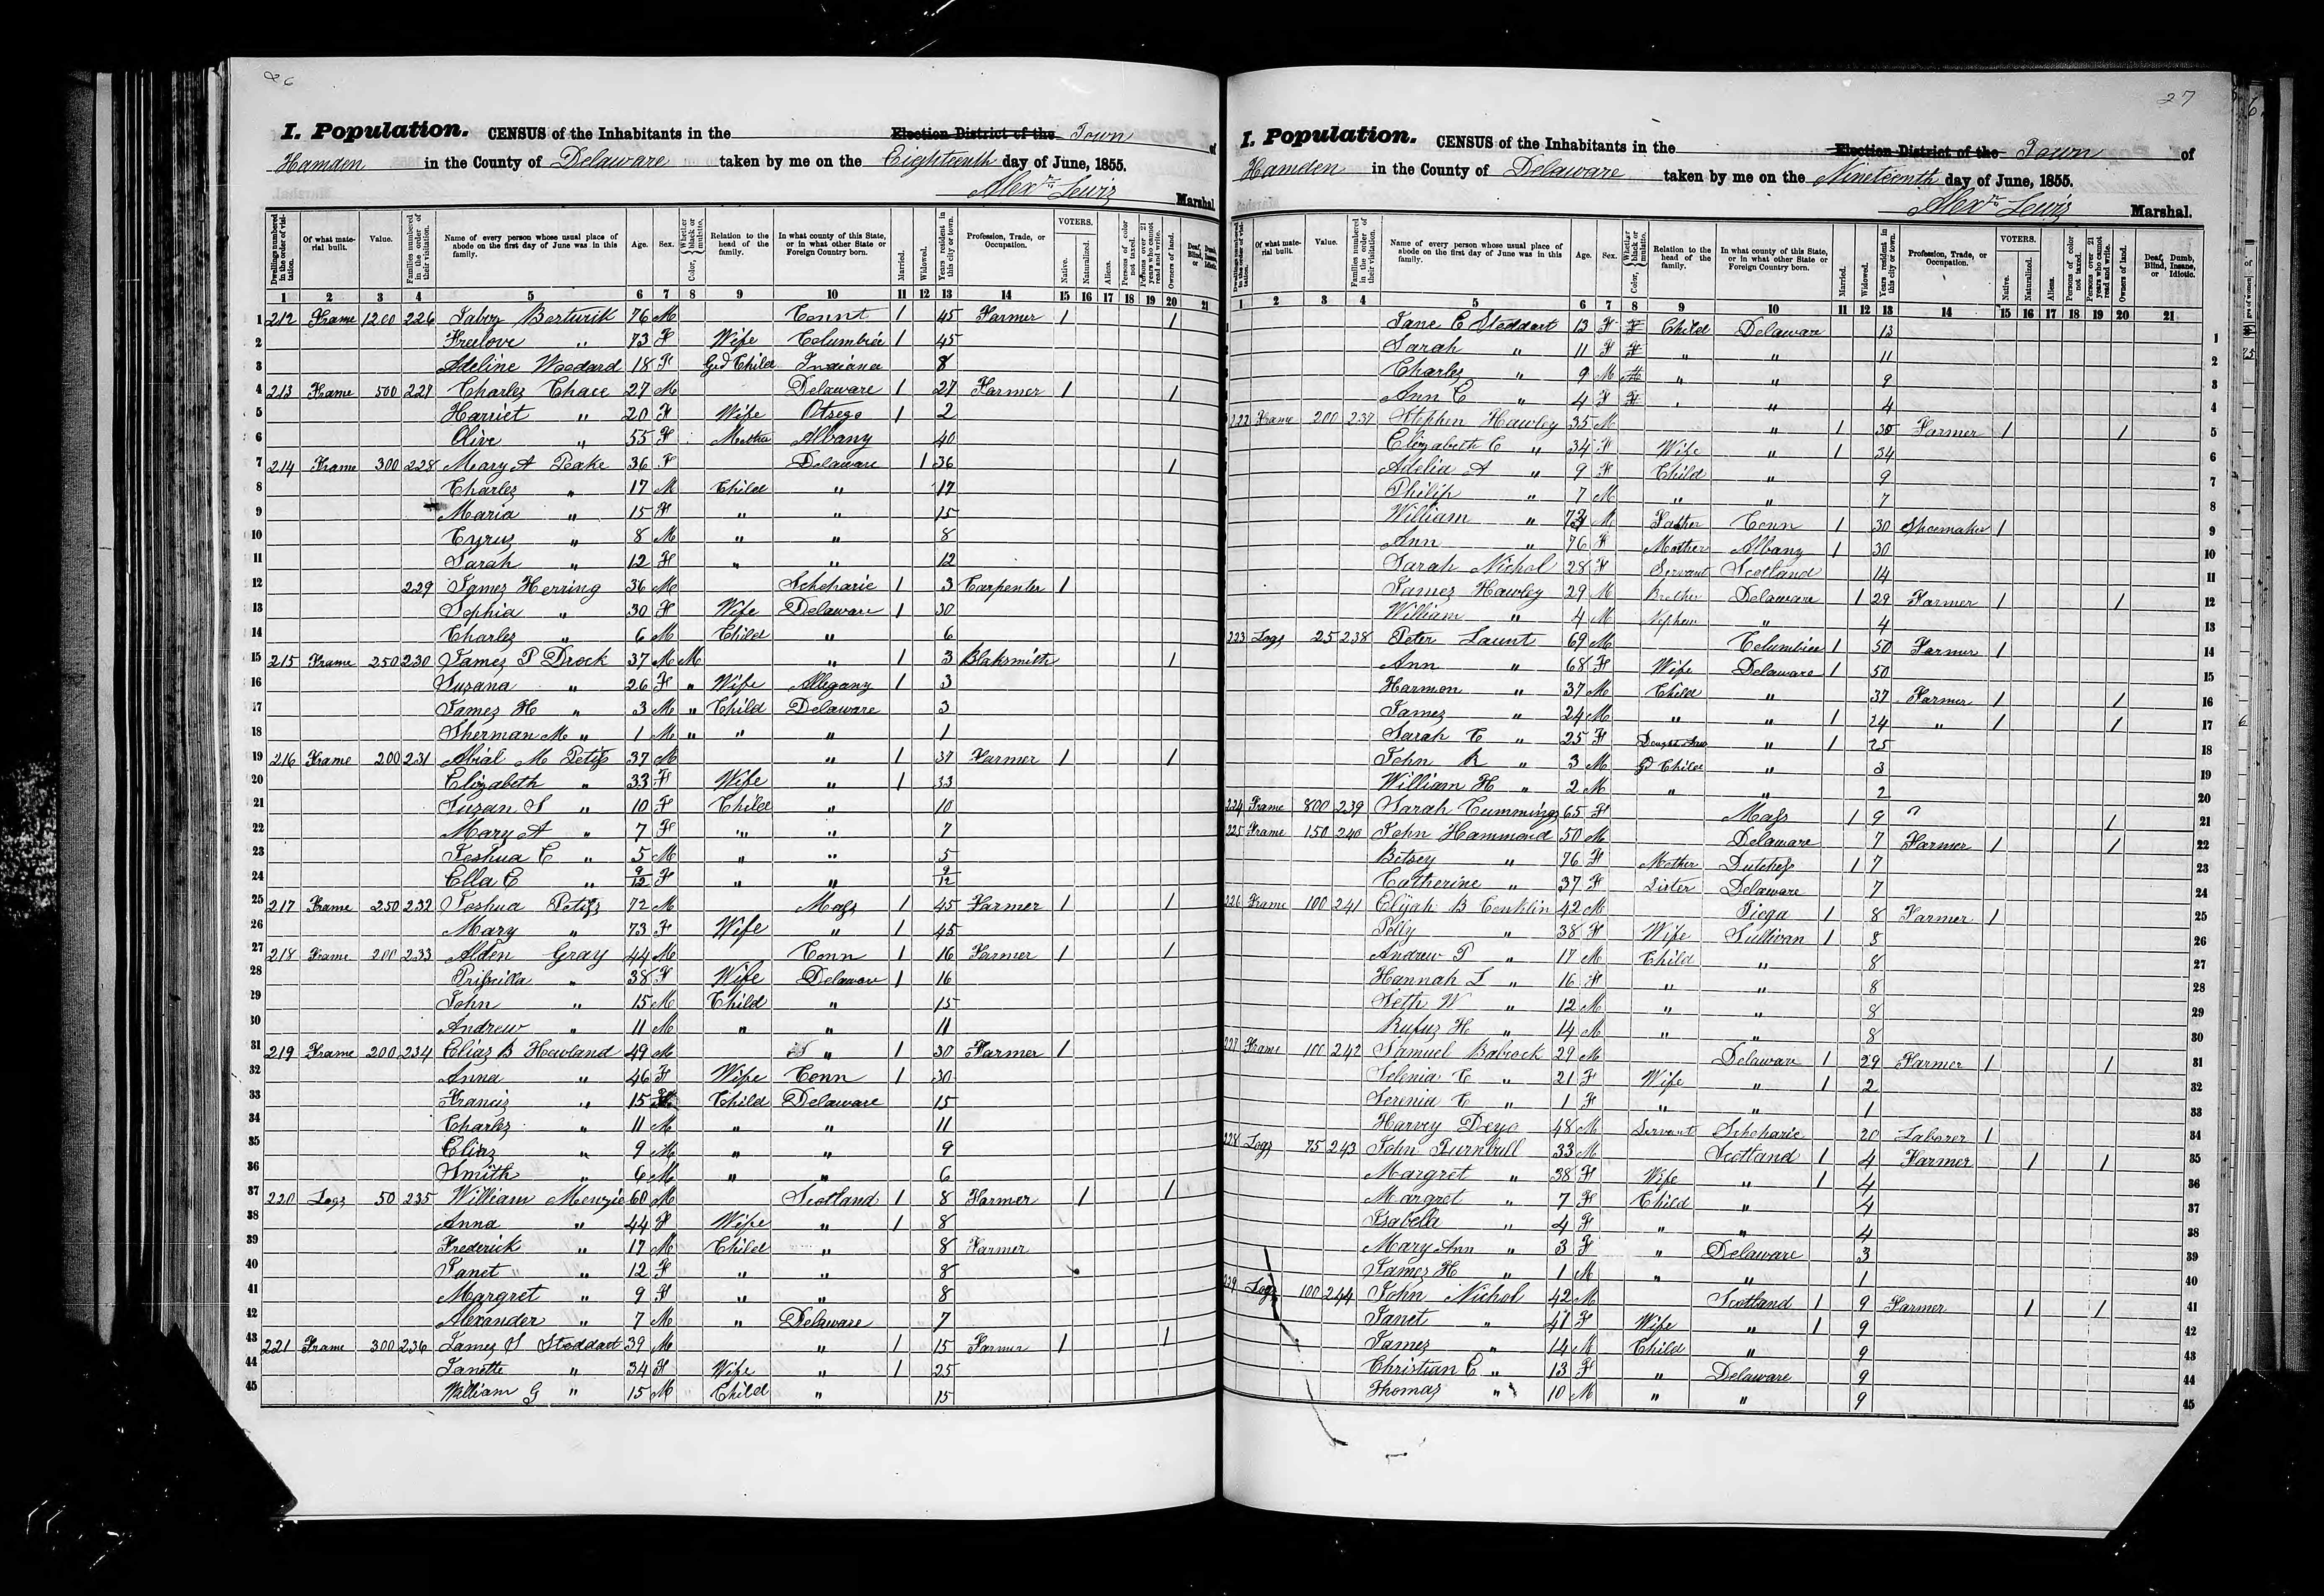 26
I. Population. CENSUS of the Inhabitants in the Election District of the Town of
Hamden in the County of Delaware taken by me on the Eighteenth day of June, 1855.
Alexr Lewis Marshal.
Dwellings numbered in the order of visitation. Of what material built. Value. Families numbered in the order of their visitation. Name of every person whose usual place of abode on the first day of June was in this family. Age. Sex. Color, Whether black or mulatto. Relation to the head of the family. In what county of this State, or in what other State or Foreign Country born. Married. Widowed. Years resident in this city or town. Profession, Trade, or Occupation. VOTERS. Native. Naturalized. Aliens. Persons of color not taxed. Persons over 21 years who cannot read and write. Owners of land. Deaf, Dumb, Blind, Insane, or Idiotic.
1 2 3 4 5 6 7 8 9 10 11 12 13 14 15 16 17 18 19 20 21
1 212 Frame 1200 226 76 M Connt 1 45 Farmer 1 1
2 Freelove " 73 F Wife Columbia 1 45
3 Adeline Woodard 18 F Gd Child Indiana 8
4 213 Frame 500 227 Charles Chace 27 M Delaware 1 27 Farmer 1 1
5 Harriet " 20 F Wife Otsego 1 2
6 Olive " 55 F Mother Albany 40
7 214 Frame 300 228 Mary A Peake 36 F Delaware 1 36 1
8 Charles " 17 M Child " 17
9 Maria " 15 F " " 15
10 Cyrus " 8 M " " 8
11 Sarah " 12 F " " 12
12 229 James Herring 36 M Schoharie 1 3 Carpenter 1
13 Sophia " 30 F Wife Delaware 1 30
14 Charles " 6 M Child " 6
15 215 Frame 250 230 James P Drock 37 M M " 1 3 Blaksmith 1
16 Suzana " 26 F " Wife Allegany 1 3
17 James H " 3 M " Child Delaware 3
18 Sherman M " 1 M " " " 1
19 216 Frame 200 231 Abial M Petis 37 M " 1 37 Farmer 1 1
20 Elizabeth " 33 F Wife " 1 33
21 Suzan S " 10 F Child " 10
22 Mary A " 7 F " " 7
23 Joshua C " 5 M " " 5
24 Ella C " 9/12 F " " 9/12
25 217 Frame 250 232 Joshua Petis 72 M Mass 1 45 Farmer 1 1
26 Mary " 73 F Wife " 1 45
27 218 Frame 200 233 Alden Gray 44 M Conn 1 16 Farmer 1 1
28 Prisscilla " 38 F Wife Delawar 1 16
29 John " 15 M Child " 15
30 Andrew " 11 M " " 11
31 219 Frame 200 234 Elias B Howland 49 M " 1 30 Farmer 1
32 Anna " 46 F Wife Conn 1 30
33 Francis " 15 Child Delaware 15
34 Charles " 11 M " " 11
35 Elias " 9 M " " 9
36 Smith " 6 M " " 6
37 220 Logs 50 235 William Menzie 60 M Scotland 1 8 Farmer 1 1
38 Anna " 44 F Wife " 1 8
39 Frederick " 17 M Child " 8 Farmer
40 Janet " 12 F " " 8
41 Margret " 9 F " " 8
42 Alexander " 7 M " Delaware 7
43 221 Frame 300 236 James S Stoddart 39 M " 1 15 Farmer 1 1
44 Janette " 34 F Wife " 1 25
45 William G " 15 M Child " 15
27
I. Population. CENSUS of the Inhabitants in the Election District of the Town of
Hamden in the County of Delaware taken by me on the Nineteenth day of June, 1855.
Alexr Lewis Marshal.
Dwellings numbered in the order of visitation. Of what material built. Value. Families numbered in the order of their visitation. Name of every person whose usual place of abode on the first day of June was in this family. Age. Sex. Color, Whether black or mulatto. Relation to the head of the family. In what county of this State, or in what other State or Foreign Country born. Married. Widowed. Years resident in this city or town. Profession, Trade, or Occupation. VOTERS. Native. Naturalized. Aliens. Persons of color not taxed. Persons over 21 years who cannot read and write. Owners of land. Deaf, Dumb, Blind, Insane, or Idiotic.
1 2 3 4 5 6 7 8 9 10 11 12 13 14 15 16 17 18 19 20 21
Jane C Stoddart 13 F F Child Delaware 13 1
Sarah " 11 F F " " 11 2
Charles " 9 M M " " 9 3
Ann C " 4 F F " " 4 4
222 Frame 200 237 Stephen Hawley 35 M " 1 35 Farmer 1 1 5
Elizabeth C " 34 F Wife " 1 34 6
Adelia A " 9 F Child " 9 7
Philip " 7 M " " 7 8
William " M Father Conn 1 30 Shoemaker 1 9
Ann " 76 F Mother Albany 1 30 10
Sarah Nichol 28 F Servant Scotland 14 11
James Hawley 29 M Brother Delaware 1 29 Farmer 1 1 12
William " 4 M Nephew " 4 13
223 Logs 25 238 Peter Launt 69 M Columbia 1 50 Farmer 1 14
Ann " 68 F Wife Delaware 1 50 15
Harmon " 37 M Child " 37 Farmer 1 1 16
James " 24 M " " 1 24 " 1 1 17
Sarah C " 25 F " 1 25 18
John R " 3 M G Child " 3 19
William H " 2 M " " 2 20
224 Frame 800 239 Sarah Cummings 65 F Mass 1 9 1 21
225 Frame 150 240 John Hammond 50 M Delaware 7 Farmer 1 1 22
Betsey " 76 F Mother Dutchess 1 7 23
Catherine " 37 F Sister Delaware 7 24
226 Frame 100 241 Elijah B Conklin 42 M Tioga 1 8 Farmer 1 25
Polly " 38 F Wife Sullivan 1 8 26
Andrew P " 17 M Child " 8 27
Hannah L " 16 F " " 8 28
Seth W " 12 M " " 8 29
Rufus H " 14 M " " 8 30
227 Frame 100 242 Samuel Babcock 29 M Delaware 1 29 Farmer 1 1 31
Selenia C " 21 F Wife " 1 2 32
Serenia C " 1 F " " 1 33
Harvey Deyo 48 M Servant Schoharie 20 Laborer 1 34
228 Logs 75 243 John Turnbull 33 M Scotland 1 4 Farmer 1 1 35
Margret " 38 F Wife " 1 4 36
Margret " 7 F Child " 4 37
Isabella " 4 F " " 4 38
Mary Ann " 3 F " Delaware 3 39
James H " 1 M " " 1 40
229 Logs 100 244 John Nichol 42 M Scotland 1 9 Farmer 1 1 41
Janet " 41 F Wife " 1 9 42
James " 14 M Child " 9 43
Christian C " 13 F " Delaware 9 44
Thomas " 10 M " " 9 45